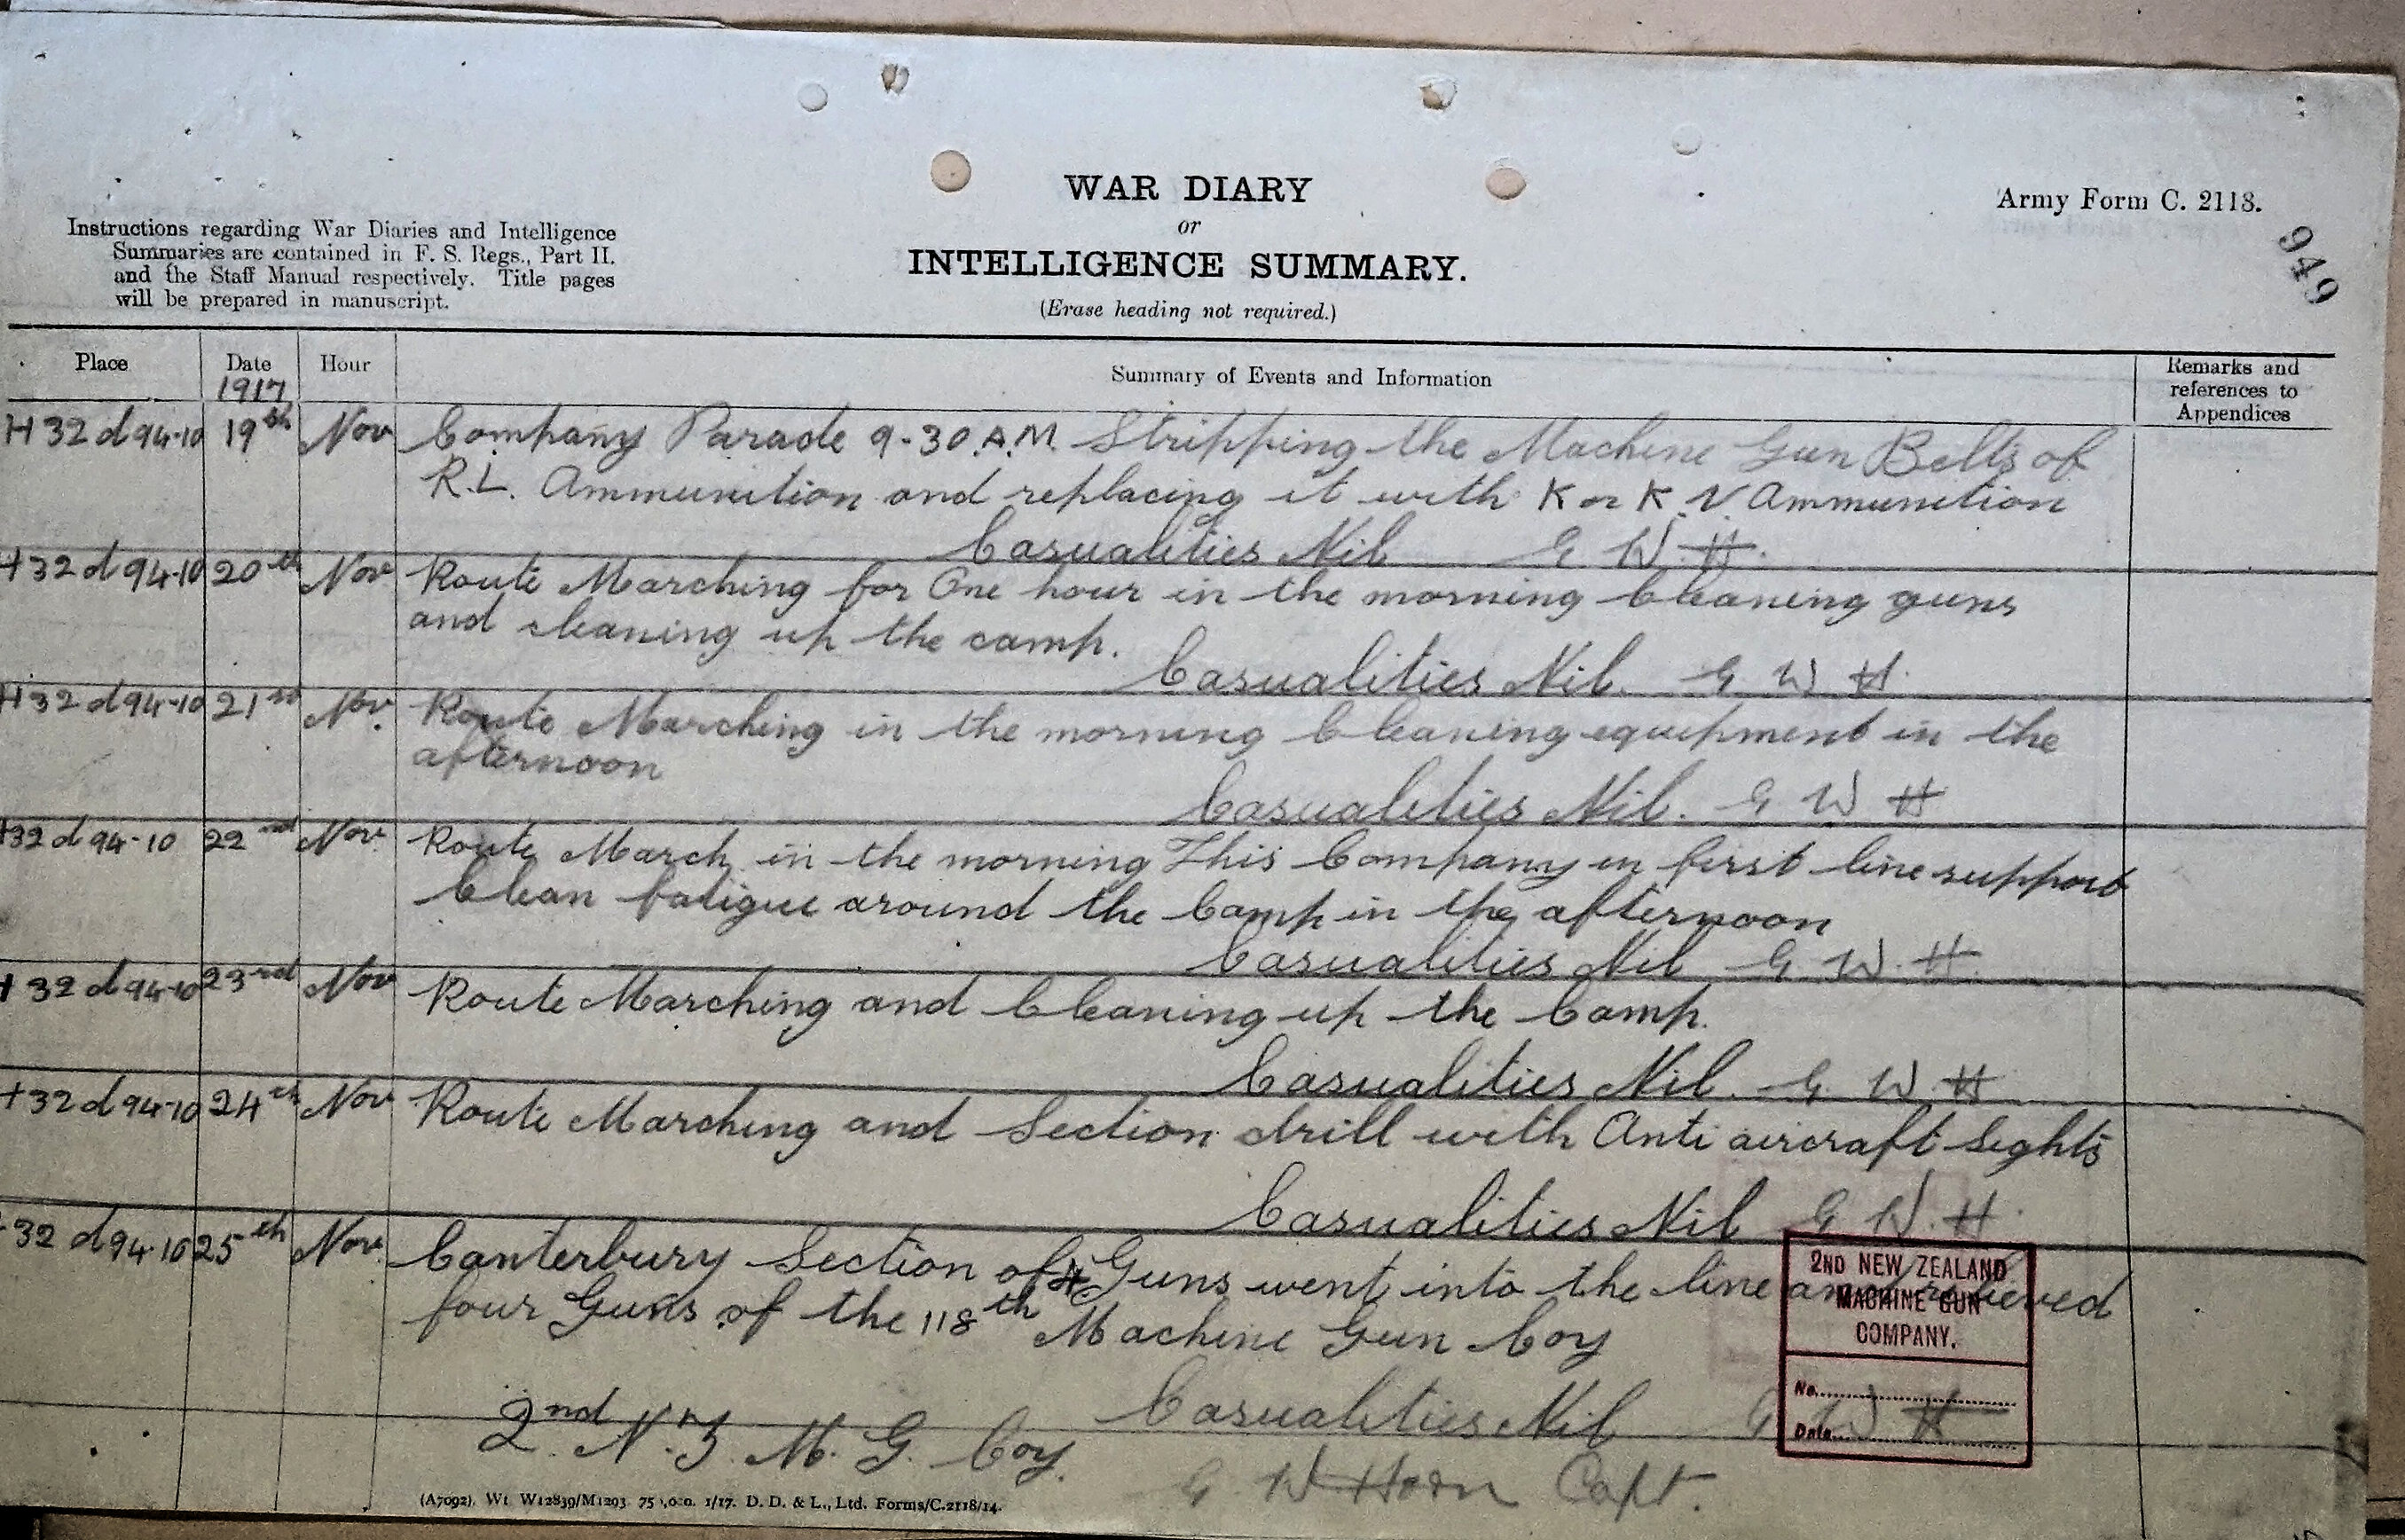 WAR DIARY
or
INTELLIGENCE SUMMARY.
(Erase heading not required.)
Army Form C. 2118.
949
Instructions regarding War Diaries and Intelligence
Summaries are contained in F. S. Regs., Part II.
and the Staff Manual respectively. Title pages
will be prepared in manuscript.
Place Date Hour Summary of Events and Information Remarks and references to Appendices
1917
H 32 d 94-10 19th Nov Company Parade 9-30 A.M. Stripping the Machine Gun Belts of
R.L. Ammunition and replacing it with K or K.N Ammunition
Casualities Nil G W H.
H 32 d 94-10 20th Nov Route Marching for One hour in the morning Cleaning guns
and cleaning up the camp.
Casualities Nil. G W H.
H 32 d 94-10 21st Nov. Route Marching in the morning Cleaning equipment in the
afternoon
Casualities Nil. G W H
H32 d 94-10 22nd Nov. Route March in the morning This Company in first line support
Clean fatigue around the Camp in the afternoon
Casualities Nil G W. H.
H 32 d 94-10 23rd Nov Route Marching and Cleaning up the Camp.
Casualities Nil. G. W H
H 32 d 94-10 24th Nov Route Marching and Section drill with Anti aircraft Sights
Casualities Nil G W. H.
32 d 94-10 25th Nov. Canterbury Section of 4 Guns went into the line and relieved
four Guns of the 118th Machine Gun Coy
Casualities Nil G W H
2nd N.Z M. G. Coy.
G W Horn Capt.
2ND NEW ZEALAND
MACHINE GUN
COMPANY.
No.
Date
(A7092). Wt W12839/M1293. 75 ,000. 1/17. D. D. & L., Ltd. Forms/C.2118/14.